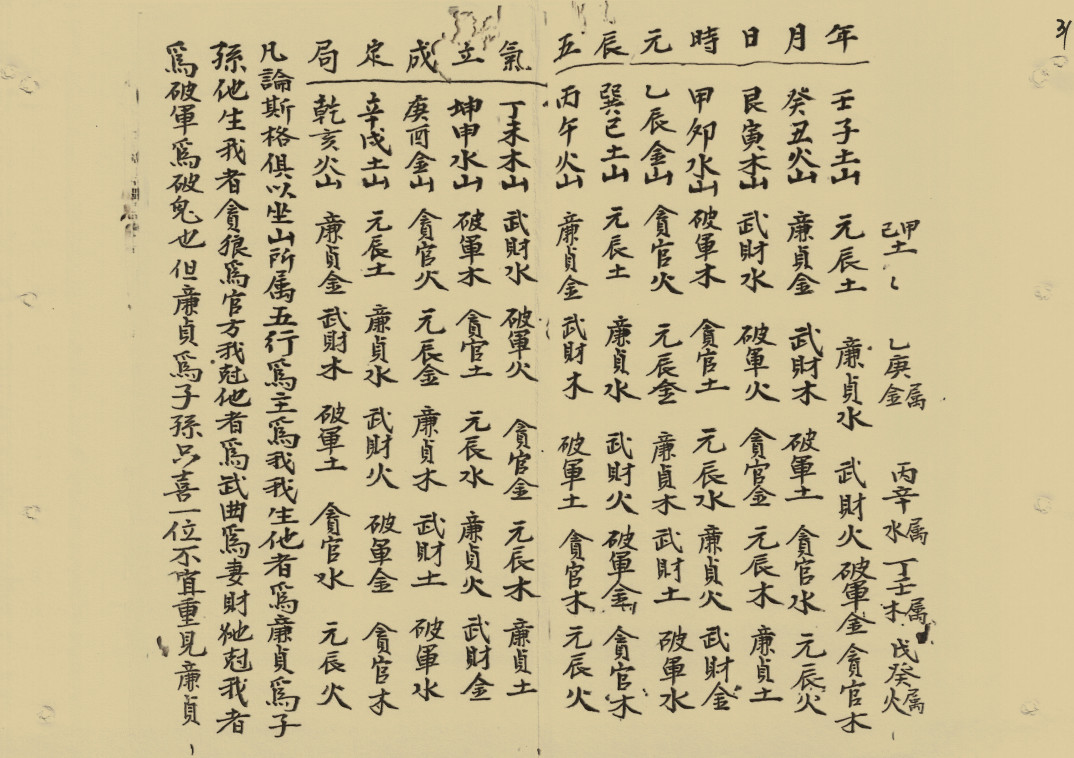 31
年月日時元辰五氣立成定局
甲己土 乙庚金属 丙辛水属 丁壬木属 戊癸火属
壬子土山 元辰土 廉貞水 武財火 破軍金 貪官木
癸丑火山 廉貞金 武財木 破軍土 貪官水 元辰火
艮寅木山 武財水 破軍火 貪官金 元辰木 廉貞土
甲卯水山 破軍木 貪官土 元辰水 廉貞火 武財金
乙辰金山 貪官火 元辰金 廉貞木 武財土 破軍水
巽巳土山 元辰土 廉貞水 武財火 破軍金 貪官木
丙午火山 廉貞金 武財木 破軍土 貪官木 元辰火
丁未木山 武財水 破軍火 貪官金 元辰木 廉貞土
坤申水山 破軍木 貪官土 元辰水 廉貞火 武財金
庚酉金山 貪官火 元辰金 廉貞木 武財土 破軍水
辛戌土山 元辰土 廉貞水 武財火 破軍金 貪官木
乾亥火山 廉貞金 武財木 破軍土 貪官水 元辰火
凡論斯格俱以坐山所属五行爲主爲我我生他者爲廉貞爲子
孫他生我者貪狼爲官方我尅他者爲武曲爲妻財他尅我者
爲破軍爲破鬼也但廉貞爲子孫只喜一位不宜重見廉貞